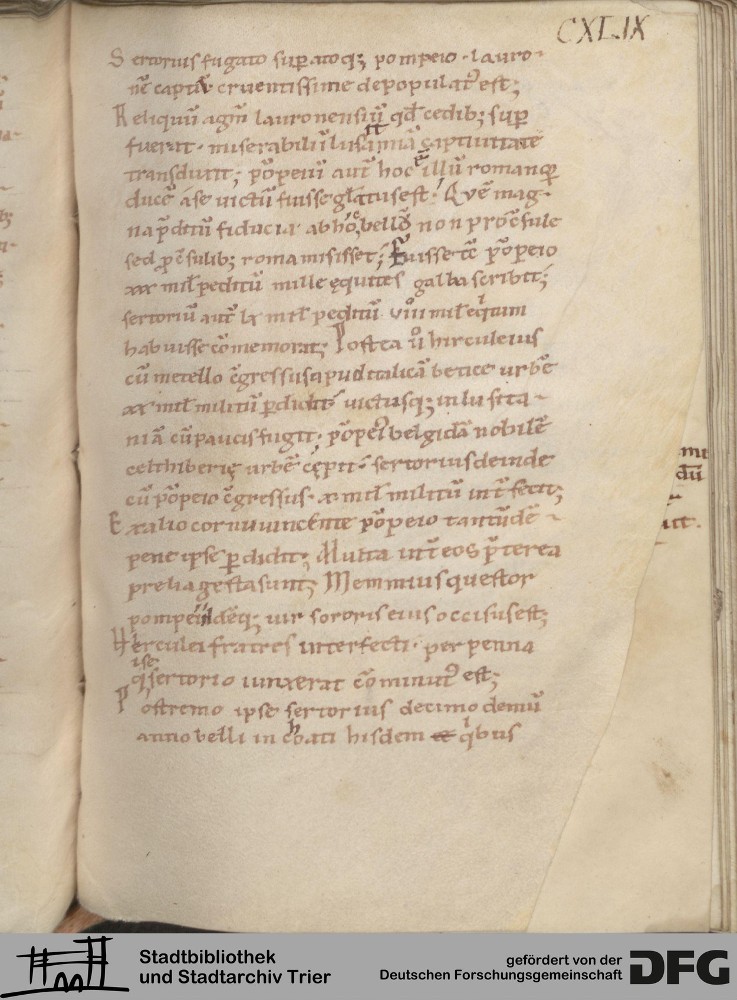 CXLIX
Sertorius fugato suꝑatoq; pompeio · lauro-
nē captā cruentissime depopulat᷒ est;
Reliquū agm̄ lauronensiū qd̄ cedib; suꝑ
fuerat · miserabili ī lusitaniā captiuitate
transduxit; pōpeiū aut̄ hoc ē illū romanoꝝ
ducē a se uictū fuisse gl̄atus est; Quē mag-
na p̄ditū fiducia ab hoc bello non pro cōsule
sed p cōsulib; roma misisset; Fuisse tc̄ pōpeio
xxx mil̄ peditū mille ęquites galba scribit;
sertoriū aut̄ lx mil̄ peditū · viii mil̄ equitum
habuisse cōmemorat; Postea u̅o hirculeius
cū metello cōgressus apud italicā betice urbē
xx mil̄ militū ꝑdidit · uictusq; in lusita-
niā cū paucis fugit; pōpei᷒ belgidā nobilē
celthiberię urbē cępit · sertorius deinde
cū pōpeio cōgressus · x mil̄ militū int̄fecit;
Ex alio cornu uincente pōpeio tantūdē
pene ipse ꝑdidit; Multa int̄ eos p̄terea
prelia gesta sunt; Memmius questor
pompeii idēq; uir sororis eius occisus est;
Herculei fratres interfecti · perpenna
qui se
sertorio iunxerat cōminut᷒ est;
Postremo ipse sertorius decimo demū
anno belli inchoati hisdem quibus
Stadtbibliothek
und Stadtarchiv Trier
gefördert von der
Deutschen Forschungsgemeinschaft
DFG